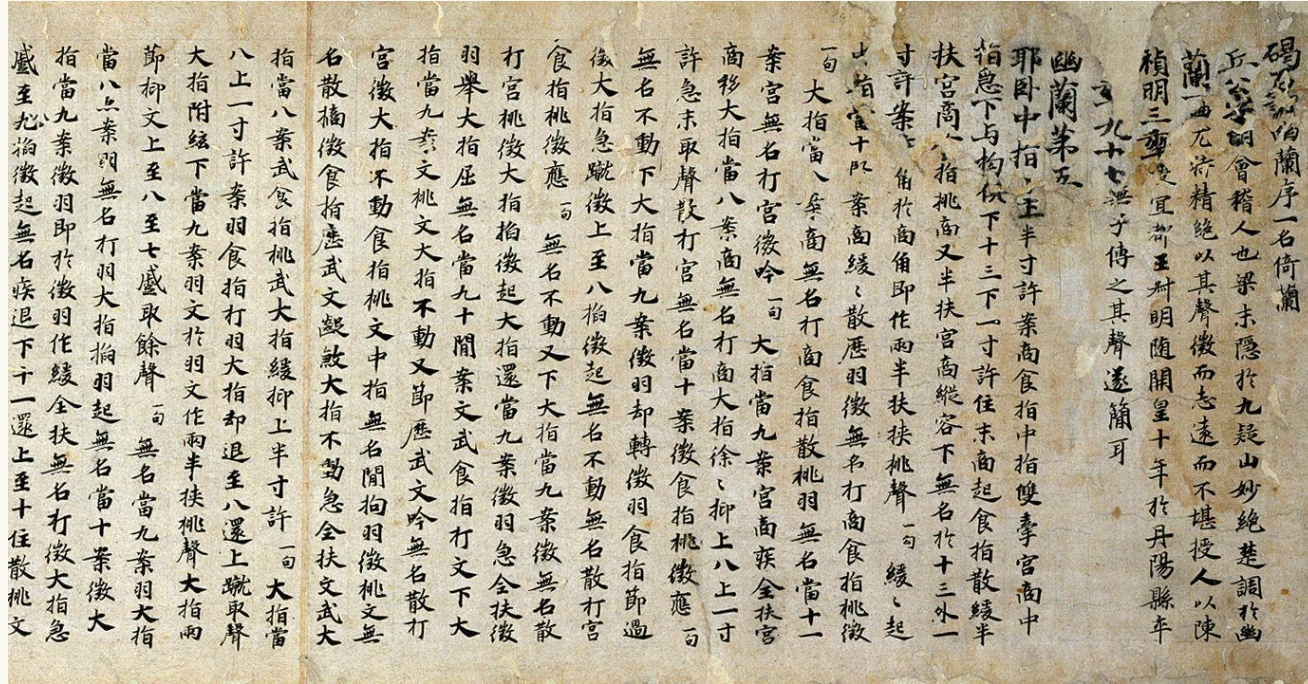 碣石調幽蘭序一名倚蘭
丘公字明會稽人也梁末隱於九疑山妙絕楚調於幽
蘭一曲尤特精絕以其聲微而志遠而不堪授人以陳
禎明三年授宜都王叔明隨開皇十年於丹陽縣卒
九十七無子傳之其聲遂簡耳
幽蘭第五
耶臥中指半寸許案商食指中指雙牽宮商中
指急下与拘俱下十三下一寸許住末商起食指散緩半
扶宮商食指挑商又半扶宮商縱容下無名於十三外一
寸許案角於商角即作兩半扶挾挑聲一句緩〻起
指當十案商緩〻散歷羽徵無名打商食指挑徵
一句大指當八案商無名打商食指散挑羽無名當十一
案宮無名打宮徵吟一句大指當九案宮商疾全扶宮
商移大指當八案商無名打商大指徐〻抑上八上一寸
許急末取聲散打宮無名當十案徵食指挑徵應一句
無名不動下大指當九案徵羽却轉徵羽食指節過
徵大指急蹴徵上至八掐徵起無名不動無名散打宮
食指挑徵應一句無名不動又下大指當九案徵無名散
打宮挑徵大指掐徵起大指還當九案徵羽急全扶徵
羽舉大指屈無名當九十間案文武食指打文下大
指當九案文挑文大指不動又節歷武文吟無名散打
宮徵大指不動食指挑文中指無名間拘羽徵挑文無
名散摘徵食指歷武文蹴煞大指不動急全扶文武大
指當八案武食指挑武大指緩抑上半寸許一句大指當
八上一寸許案羽食指打羽大指却退至八還上蹴取聲
大指附絃下當九案羽文於羽文作兩半挾挑聲大指兩
節抑文上至八至七蹙取餘聲一句無名當九案羽大指
當八上案羽無名打羽大指掐羽起無名當十案徵大
指當九案徵羽即於徵羽作緩全扶無名打徵大指急
蹙至九掐徵起無名疾退下十一還上至十住散挑文